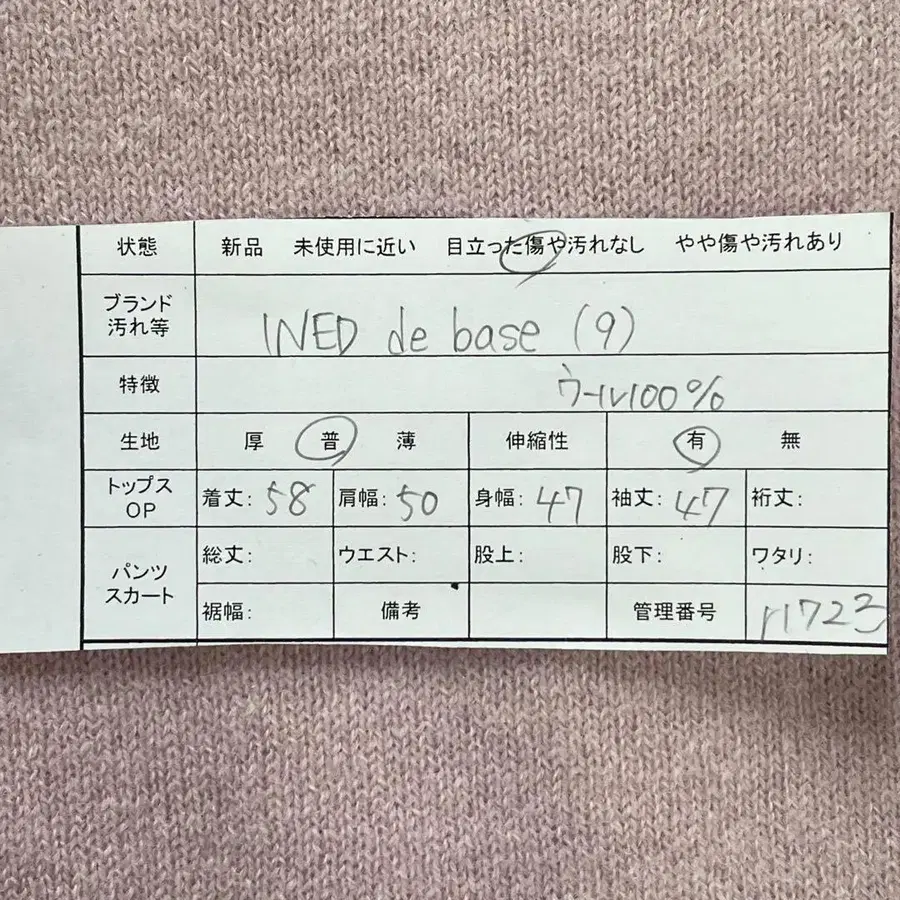 状態 新品 未使用に近い 目立った傷や汚れなし やや傷や汚れあり
ブランド
汚れ等
INED de base (9)
特徴 ウール100%
生地 厚 普 薄 伸縮性 有 無
トップス
OP
着丈: 58 肩幅: 50 身幅: 47 袖丈: 47 裄丈:
パンツ
スカート
総丈: ウエスト: 股上: 股下: ワタリ:
裾幅: 備考 管理番号 r1723